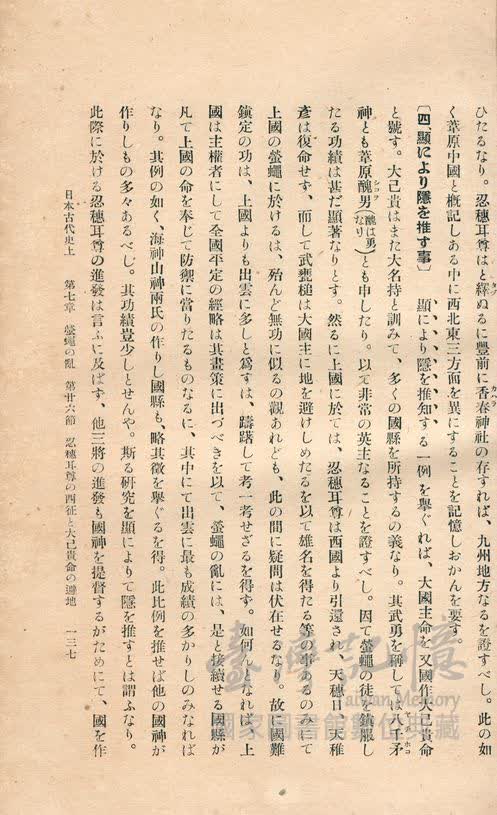 ひたるなり。忍穗耳尊はと繹ぬるに豐前に香春神社の存すれば、九州地方なるを證すべし。此の如
く葦原中國と概記しある中に西北東三方面を異にすることを記憶しおかんを要す。
〔四〕顯により隱を推す事〕 顯により隱を推知する一例を擧ぐれば、大國主命を又國作大己貴命
と號す。大己貴はまた大名持と訓みて、多くの國縣を所持するの義なり。其武勇を稱しては八千矛
神とも葦原醜男(醜は勇なり)とも申したり。以て非常の英主なることを證すべし。因て螢蠅の徒を鎮服し
たる功績は甚だ顯著なりとす。然るに上國に於ては、忍穗耳尊は西國より引還され、天穗日、天稚
彥は復命せず、而して武甕槌は大國主に地を避けしめたるを以て雄名を得たる等の事あるのみにて
上國の螢蠅に於けるは、殆んど無功に似るの觀あれども、此の間に疑問は伏在せるなり。故に國難
鎮定の功は、上國よりも出雲に多しと爲すは、躊躇して考一考せざるを得ず。如何んとなれば、上
國は主權者にして全國平定の經略は其畫策に出づべきを以て、螢蠅の亂には、是と接續せる國縣が
凡て上國の命を奉じて防禦に當りたるものなるに、其中にて出雲に最も成績の多かりしのみなれば
なり。其例の如く、海神山神兩氏の作りし國縣も、略其徵を擧ぐるを得。此比例を推せば他の國神が
作りしもの多々あるべし。其功績豈少しとせんや。斯る研究を顯によりて隱を推すとは謂ふなり。
此際に於ける忍穗耳尊の進發は言ふに及ばず、他三將の進發も國神を提督するがためにて、國を作
日本古代史上 第七章 螢蠅の亂 第廿六節 忍穗耳尊の西征と大己貴命の避地 一三七
臺灣記憶
Taiwan Memory
國家圖書館數位典藏